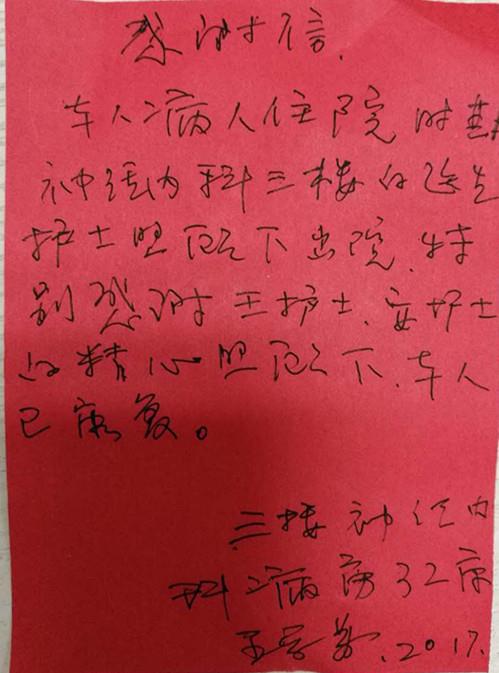 感谢信.
本人、病人住院时
神经内科三楼的医生
护士照顾下出院.特
别感谢王护士、安护士
的精心照顾下.本人
已康复。
三楼神经内
科二病房32床
2017.